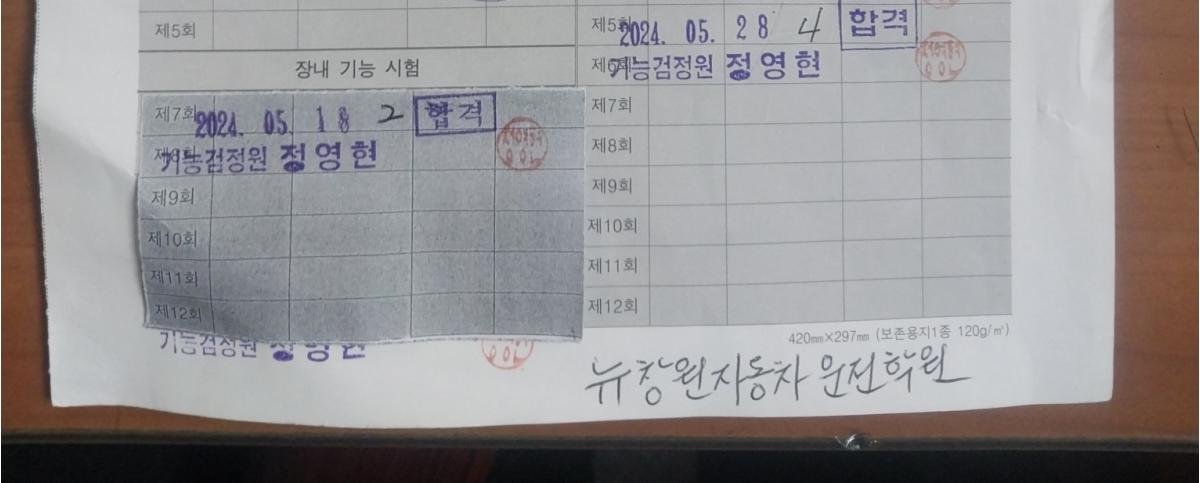 제5회
장내 기능 시험
제7회 2024. 05. 18 2 합격
제8회 기능검정원 정영현
제9회
제10회
제11회
제12회
기능검정원 정영현
제5회 2024. 05. 28 4 합격
제6회 기능검정원 정영현
제7회
제8회
제9회
제10회
제11회
제12회
420mm×297mm (보존용지1종 120g/㎡)
뉴창원자동차 운전학원